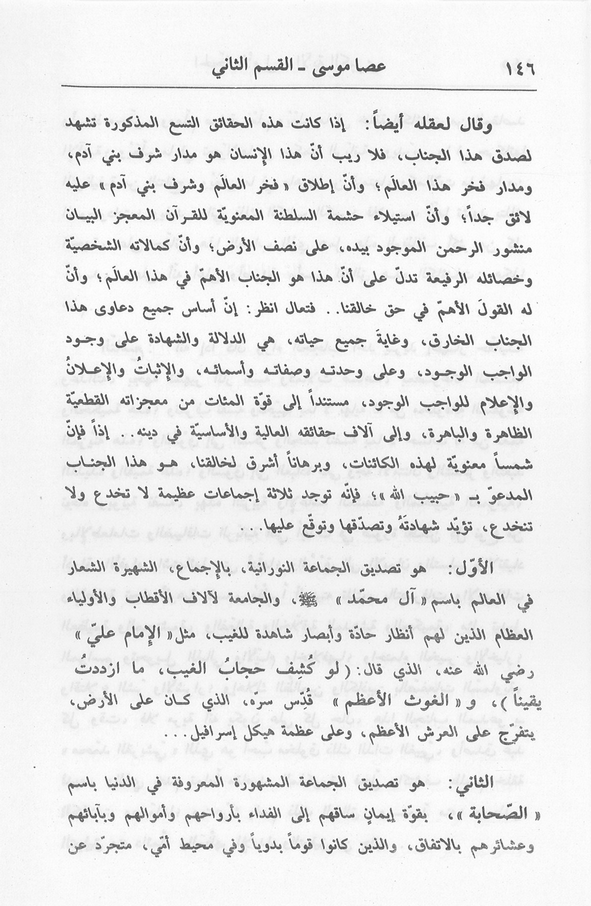 ١٤٦
عصا موسى - القسم الثاني
وقال لعقله أيضاً: إذا كانت هذه الحقائق التسع المذكورة تشهد
لصدق هذا الجناب، فلا ريب أنّ هذا الإنسان هو مدار شرف بني آدم،
ومدار فخر هذا العالَم؛ وأنّ إطلاق «فخر العالَم وشرف بني آدم» عليه
لائق جداً؛ وأنّ استيلاء حشمة السلطنة المعنوية للقرآن المعجز البيان
منشور الرحمن الموجود بيده، على نصف الأرض؛ وأنّ كمالاته الشخصيّة
وخصائله الرفيعة تدلّ على أنّ هذا هو الجناب الأهمّ في هذا العالَم؛ وأنّ
له القولَ الأهمّ في حق خالقنا.. فتعال انظر: إنّ أساس جميع دعاوى هذا
الجناب الخارق، وغايةَ جميع حياته، هي الدلالة والشهادة على وجود
الواجب الوجود، وعلى وحدته وصفاته وأسمائه، والإثباتُ والإعلانُ
والإعلام للواجب الوجود، مستنداً إلى قوّة المئات من معجزاته القطعيّة
الظاهرة والباهرة، وإلى آلاف حقائقه العالية والأساسيّة في دينه.. إذاً فإنّ
شمساً معنويّة لهذه الكائنات، وبرهاناً أشرق لخالقنا، هو هذا الجناب
المدعوّ بـ «حبيب الله»؛ فإنّه توجد ثلاثة إجماعات عظيمة لا تخدع ولا
تنخدع، تؤيّد شهادته وتصدّقها وتوقّع عليها...
الأوّل: هو تصديق الجماعة النورانية، بالإجماع، الشهيرة الشعار
في العالم باسم «آل محمّد» ﷺ، والجامعة لآلاف الأقطاب والأولياء
العظام الذين لهم أنظار حادّة وأبصار شاهدة للغيب، مثل «الإمام عليّ»
رضي الله عنه، الذي قال: (لو كُشِف حجابُ الغيب، ما ازددتُ
يقيناً)، و «الغوث الأعظم» قُدّس سره، الذي كان على الأرض،
يتفرّج على العرش الأعظم، وعلى عظمة هيكل إسرافيل...
الثاني: هو تصديق الجماعة المشهورة المعروفة في الدنيا باسم
«الصّحابة»، بقوّة إيمانٍ ساقهم إلى الفداء بأرواحهم وأموالهم وبآبائهم
وعشائرهم بالاتفاق، والذين كانوا قوماً بدوياً وفي محيط أمّي، متجرّد عن